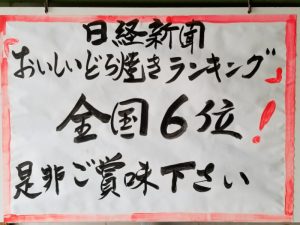 日経新聞
おいしいどら焼きランキング
全国6位!
是非ご賞味下さい